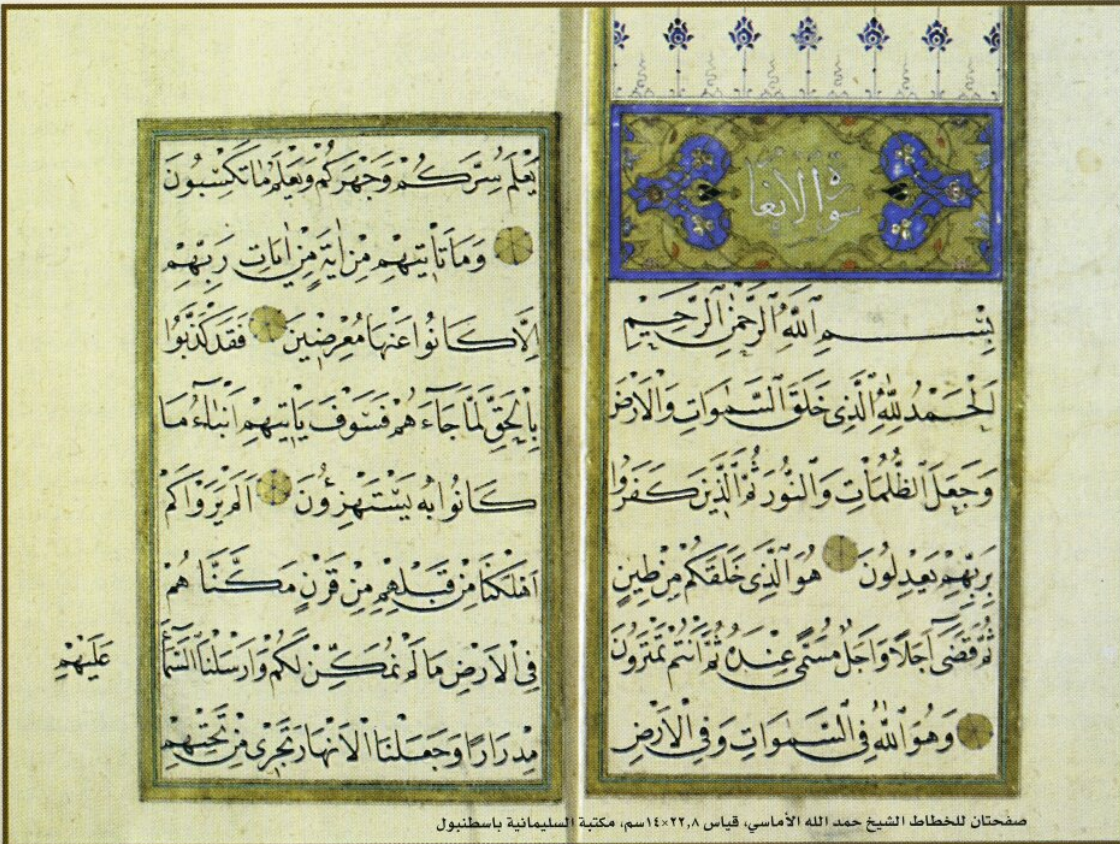 سورة الانعا
بِسْمِ اللَّهِ الرَّحْمٰنِ الرَّحِيمِ
اَلْحَمْدُ لِلّٰهِ الَّذِى خَلَقَ السَّمٰوَاتِ وَالْاَرْضَ
وَجَعَلَ الظُّلُمَاتِ وَالنُّورَ ثُمَّ الَّذِينَ كَفَرُوا
بِرَبِّهِمْ يَعْدِلُونَ هُوَ الَّذِى خَلَقَكُمْ مِنْ طِينٍ
ثُمَّ قَضَى اَجَلًا وَاَجَلٌ مُسَمًّى عِنْدَهُ ثُمَّ اَنْتُمْ تَمْتَرُونَ
وَهُوَ اللّٰهُ فِى السَّمٰوَاتِ وَفِى الْاَرْضِ
يَعْلَمُ سِرَّكُمْ وَجَهْرَكُمْ وَيَعْلَمُ مَا تَكْسِبُونَ
وَمَا تَأْتِيهِمْ مِنْ اٰيَةٍ مِنْ اٰيَاتِ رَبِّهِمْ
اِلَّا كَانُوا عَنْهَا مُعْرِضِينَ فَقَدْ كَذَّبُوا
بِالْحَقِّ لَمَّا جَآءَهُمْ فَسَوْفَ يَأْتِيهِمْ اَنْبٰٓاءُ مَا
كَانُوا بِهِ يَسْتَهْزِؤُنَ اَلَمْ يَرَوْا كَمْ
اَهْلَكْنَا مِنْ قَبْلِهِمْ مِنْ قَرْنٍ مَكَّنَّا هُمْ
فِى الْاَرْضِ مَا لَمْ نُمَكِّنْ لَكُمْ وَاَرْسَلْنَا السَّمَآءَ
عَلَيْهِمْ
مِدْرَارًا وَجَعَلْنَا الْاَنْهَارَ تَجْرِى مِنْ تَحْتِهِمْ
صفحتان للخطاط الشيخ حمد الله الأماسي، قياس ٢٢,٨×١٤سم، مكتبة السليمانية باسطنبول